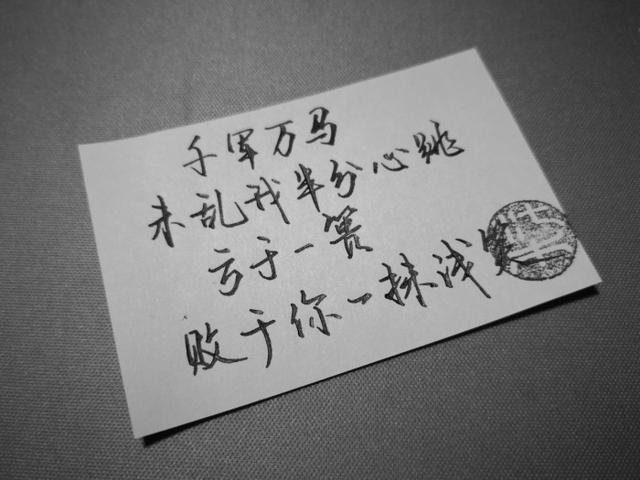 千军万马
未乱我半分心跳
亏于一篑
败于你一抹浅笑